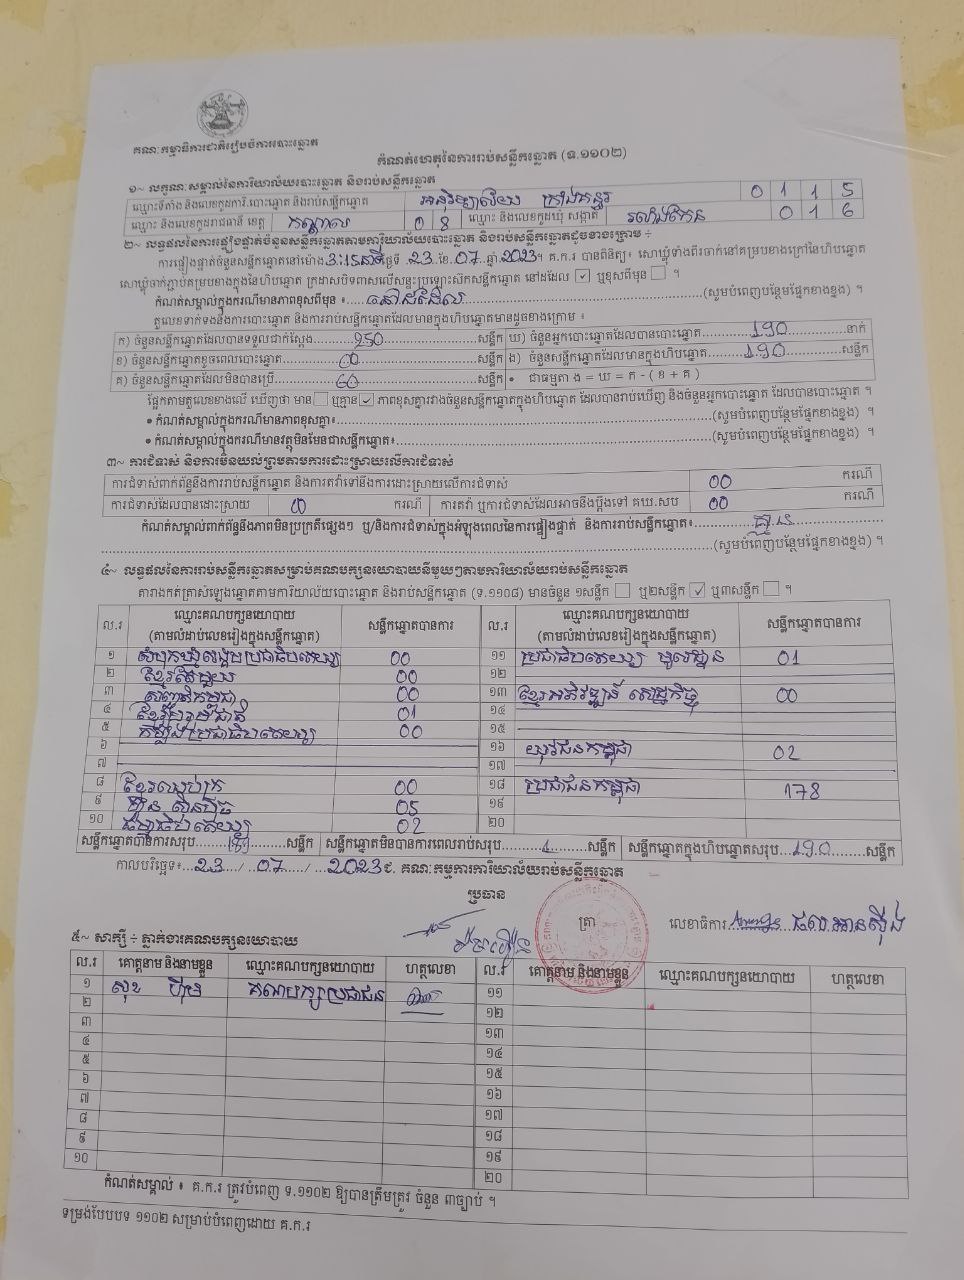 គណៈកម្មាធិការជាតិរៀបចំការបោះឆ្នោត
កំណត់ហេតុនៃការរាប់សន្លឹកឆ្នោត (ទ.១១០២)
១~ លក្ខណៈសម្គាល់នៃការិយាល័យបោះឆ្នោត និងរាប់សន្លឹកឆ្នោត
ឈ្មោះទីតាំង និងលេខកូដការិ.បោះឆ្នោត និងរាប់សន្លឹកឆ្នោត អនុវិទ្យាល័យ 0 1 1 5
ឈ្មោះ និងលេខកូដរាជធានី ខេត្ត កណ្តាល 0 8 ឈ្មោះ និងលេខកូដឃុំ សង្កាត់ រលាំងកែន 0 1 6
២~ លទ្ធផលនៃការផ្ទៀងផ្ទាត់ចំនួនសន្លឹកឆ្នោតតាមការិយាល័យបោះឆ្នោត និងរាប់សន្លឹកឆ្នោតដូចខាងក្រោម ÷
ការផ្ទៀងផ្ទាត់ចំនួនសន្លឹកឆ្នោតនៅម៉ោង 3:15នាទី ថ្ងៃទី 23 ខែ 07 ឆ្នាំ 2023។ គ.ក.រ បានពិនិត្យ៖ សោឃ្លុំទាំងពីរចាក់នៅគម្របខាងក្រៅនៃហិបឆ្នោត
សោឃ្លុំចាក់ភ្ជាប់គម្របខាងក្នុងនៃហិបឆ្នោត ក្រដាសបិទពាសលើសន្ទះប្រឡោះសឹកសន្លឹកឆ្នោត នៅដដែល ✓ ឬខុសពីមុន ។
កំណត់សម្គាល់ក្នុងករណីមានភាពខុសពីមុន ៖ នៅដដែល (សូមបំពេញបន្ថែមផ្នែកខាងខ្នង) ។
តួលេខទាក់ទងនឹងការបោះឆ្នោត និងការរាប់សន្លឹកឆ្នោតដែលមានក្នុងហិបឆ្នោតមានដូចខាងក្រោម ៖
ក) ចំនួនសន្លឹកឆ្នោតដែលបានទទួលជាក់ស្តែង 250 សន្លឹក ឃ) ចំនួនអ្នកបោះឆ្នោតដែលបានបោះឆ្នោត 190 នាក់
ខ) ចំនួនសន្លឹកឆ្នោតខូចពេលបោះឆ្នោត 00 សន្លឹក ង) ចំនួនសន្លឹកឆ្នោតដែលមានក្នុងហិបឆ្នោត 190 សន្លឹក
គ) ចំនួនសន្លឹកឆ្នោតដែលមិនបានប្រើ 60 សន្លឹក • ជាធម្មតា ង = ឃ = ក - ( ខ + គ )
ផ្អែកតាមតួលេខខាងលើ ឃើញថា មាន ឬគ្មាន ✓ ភាពខុសគ្នារវាងចំនួនសន្លឹកឆ្នោតក្នុងហិបឆ្នោត ដែលបានរាប់ឃើញ និងចំនួនអ្នកបោះឆ្នោត ដែលបានបោះឆ្នោត ។
• កំណត់សម្គាល់ក្នុងករណីមានភាពខុសគ្នា៖ (សូមបំពេញបន្ថែមផ្នែកខាងខ្នង) ។
• កំណត់សម្គាល់ក្នុងករណីមានវត្ថុមិនមែនជាសន្លឹកឆ្នោត៖ (សូមបំពេញបន្ថែមផ្នែកខាងខ្នង) ។
៣~ ការជំទាស់ និងការមិនយល់ព្រមតាមការដោះស្រាយលើការជំទាស់
ការជំទាស់ពាក់ព័ន្ធនឹងការរាប់សន្លឹកឆ្នោត និងការតវ៉ាទៅនឹងការដោះស្រាយលើការជំទាស់ 00 ករណី
ការជំទាស់ដែលបានដោះស្រាយ 00 ករណី ការតវ៉ា ឬការជំទាស់ដែលអាចនឹងប្តឹងទៅ គឃ.សប 00 ករណី
កំណត់សម្គាល់ពាក់ព័ន្ធនឹងភាពមិនប្រក្រតីផ្សេងៗ ឬ/និងការជំទាស់ក្នុងអំឡុងពេលនៃការផ្ទៀងផ្ទាត់ និងការរាប់សន្លឹកឆ្នោត៖ គ្មាន
(សូមបំពេញបន្ថែមផ្នែកខាងខ្នង) ។
៤~ លទ្ធផលនៃការរាប់សន្លឹកឆ្នោតសម្រាប់គណបក្សនយោបាយនីមួយៗតាមការិយាល័យរាប់សន្លឹកឆ្នោត
តារាងកត់ត្រាសំឡេងឆ្នោតតាមការិយាល័យបោះឆ្នោត និងរាប់សន្លឹកឆ្នោត (ទ.១១០៨) មានចំនួន ១សន្លឹក ឬ២សន្លឹក ✓ ឬ៣សន្លឹក ។
ល.រ ឈ្មោះគណបក្សនយោបាយ (តាមលំដាប់លេខរៀងក្នុងសន្លឹកឆ្នោត) សន្លឹកឆ្នោតបានការ ល.រ ឈ្មោះគណបក្សនយោបាយ (តាមលំដាប់លេខរៀងក្នុងសន្លឹកឆ្នោត) សន្លឹកឆ្នោតបានការ
១ សំបុកឃ្មុំសង្គមប្រជាធិបតេយ្យ 00 ១១ ប្រជាធិបតេយ្យ មូលដ្ឋាន 01
២ ខ្មែរតែមួយ 00 ១២
៣ សញ្ជាតិកម្ពុជា 00 ១៣ ខ្មែរអភិវឌ្ឍន៍ សេដ្ឋកិច្ច 00
៤ ខ្មែររួបរួមជាតិ 01 ១៤
៥ កម្លាំងប្រជាធិបតេយ្យ 00 ១៥
៦ ១៦ យុវជនកម្ពុជា 02
៧ ១៧
៨ ខ្មែរឈប់ក្រ 00 ១៨ ប្រជាជនកម្ពុជា 178
៩ 05 ១៩
១០ ធម្មាធិបតេយ្យ 02 ២០
សន្លឹកឆ្នោតបានការសរុប សន្លឹក សន្លឹកឆ្នោតមិនបានការពេលរាប់សរុប 1 សន្លឹក សន្លឹកឆ្នោតក្នុងហិបឆ្នោតសរុប 190 សន្លឹក
កាលបរិច្ឆេទ៖ 23 / 07 / 2023 ជ. គណៈកម្មការការិយាល័យរាប់សន្លឹកឆ្នោត
ប្រធាន
ត្រា លេខាធិការ
៥~ សាក្សី ÷ ភ្នាក់ងារគណបក្សនយោបាយ
ល.រ គោត្តនាម និងនាមខ្លួន ឈ្មោះគណបក្សនយោបាយ ហត្ថលេខា ល.រ គោត្តនាម និងនាមខ្លួន ឈ្មោះគណបក្សនយោបាយ ហត្ថលេខា
១ សុខ ហ៊ីម គណបក្សប្រជាជន ១១
២ ១២
៣ ១៣
៤ ១៤
៥ ១៥
៦ ១៦
៧ ១៧
៨ ១៨
៩ ១៩
១០ ២០
កំណត់សម្គាល់ ៖ គ.ក.រ ត្រូវបំពេញ ទ.១១០២ ឱ្យបានត្រឹមត្រូវ ចំនួន ៣ច្បាប់ ។
ទម្រង់បែបបទ ១១០២ សម្រាប់បំពេញដោយ គ.ក.រ